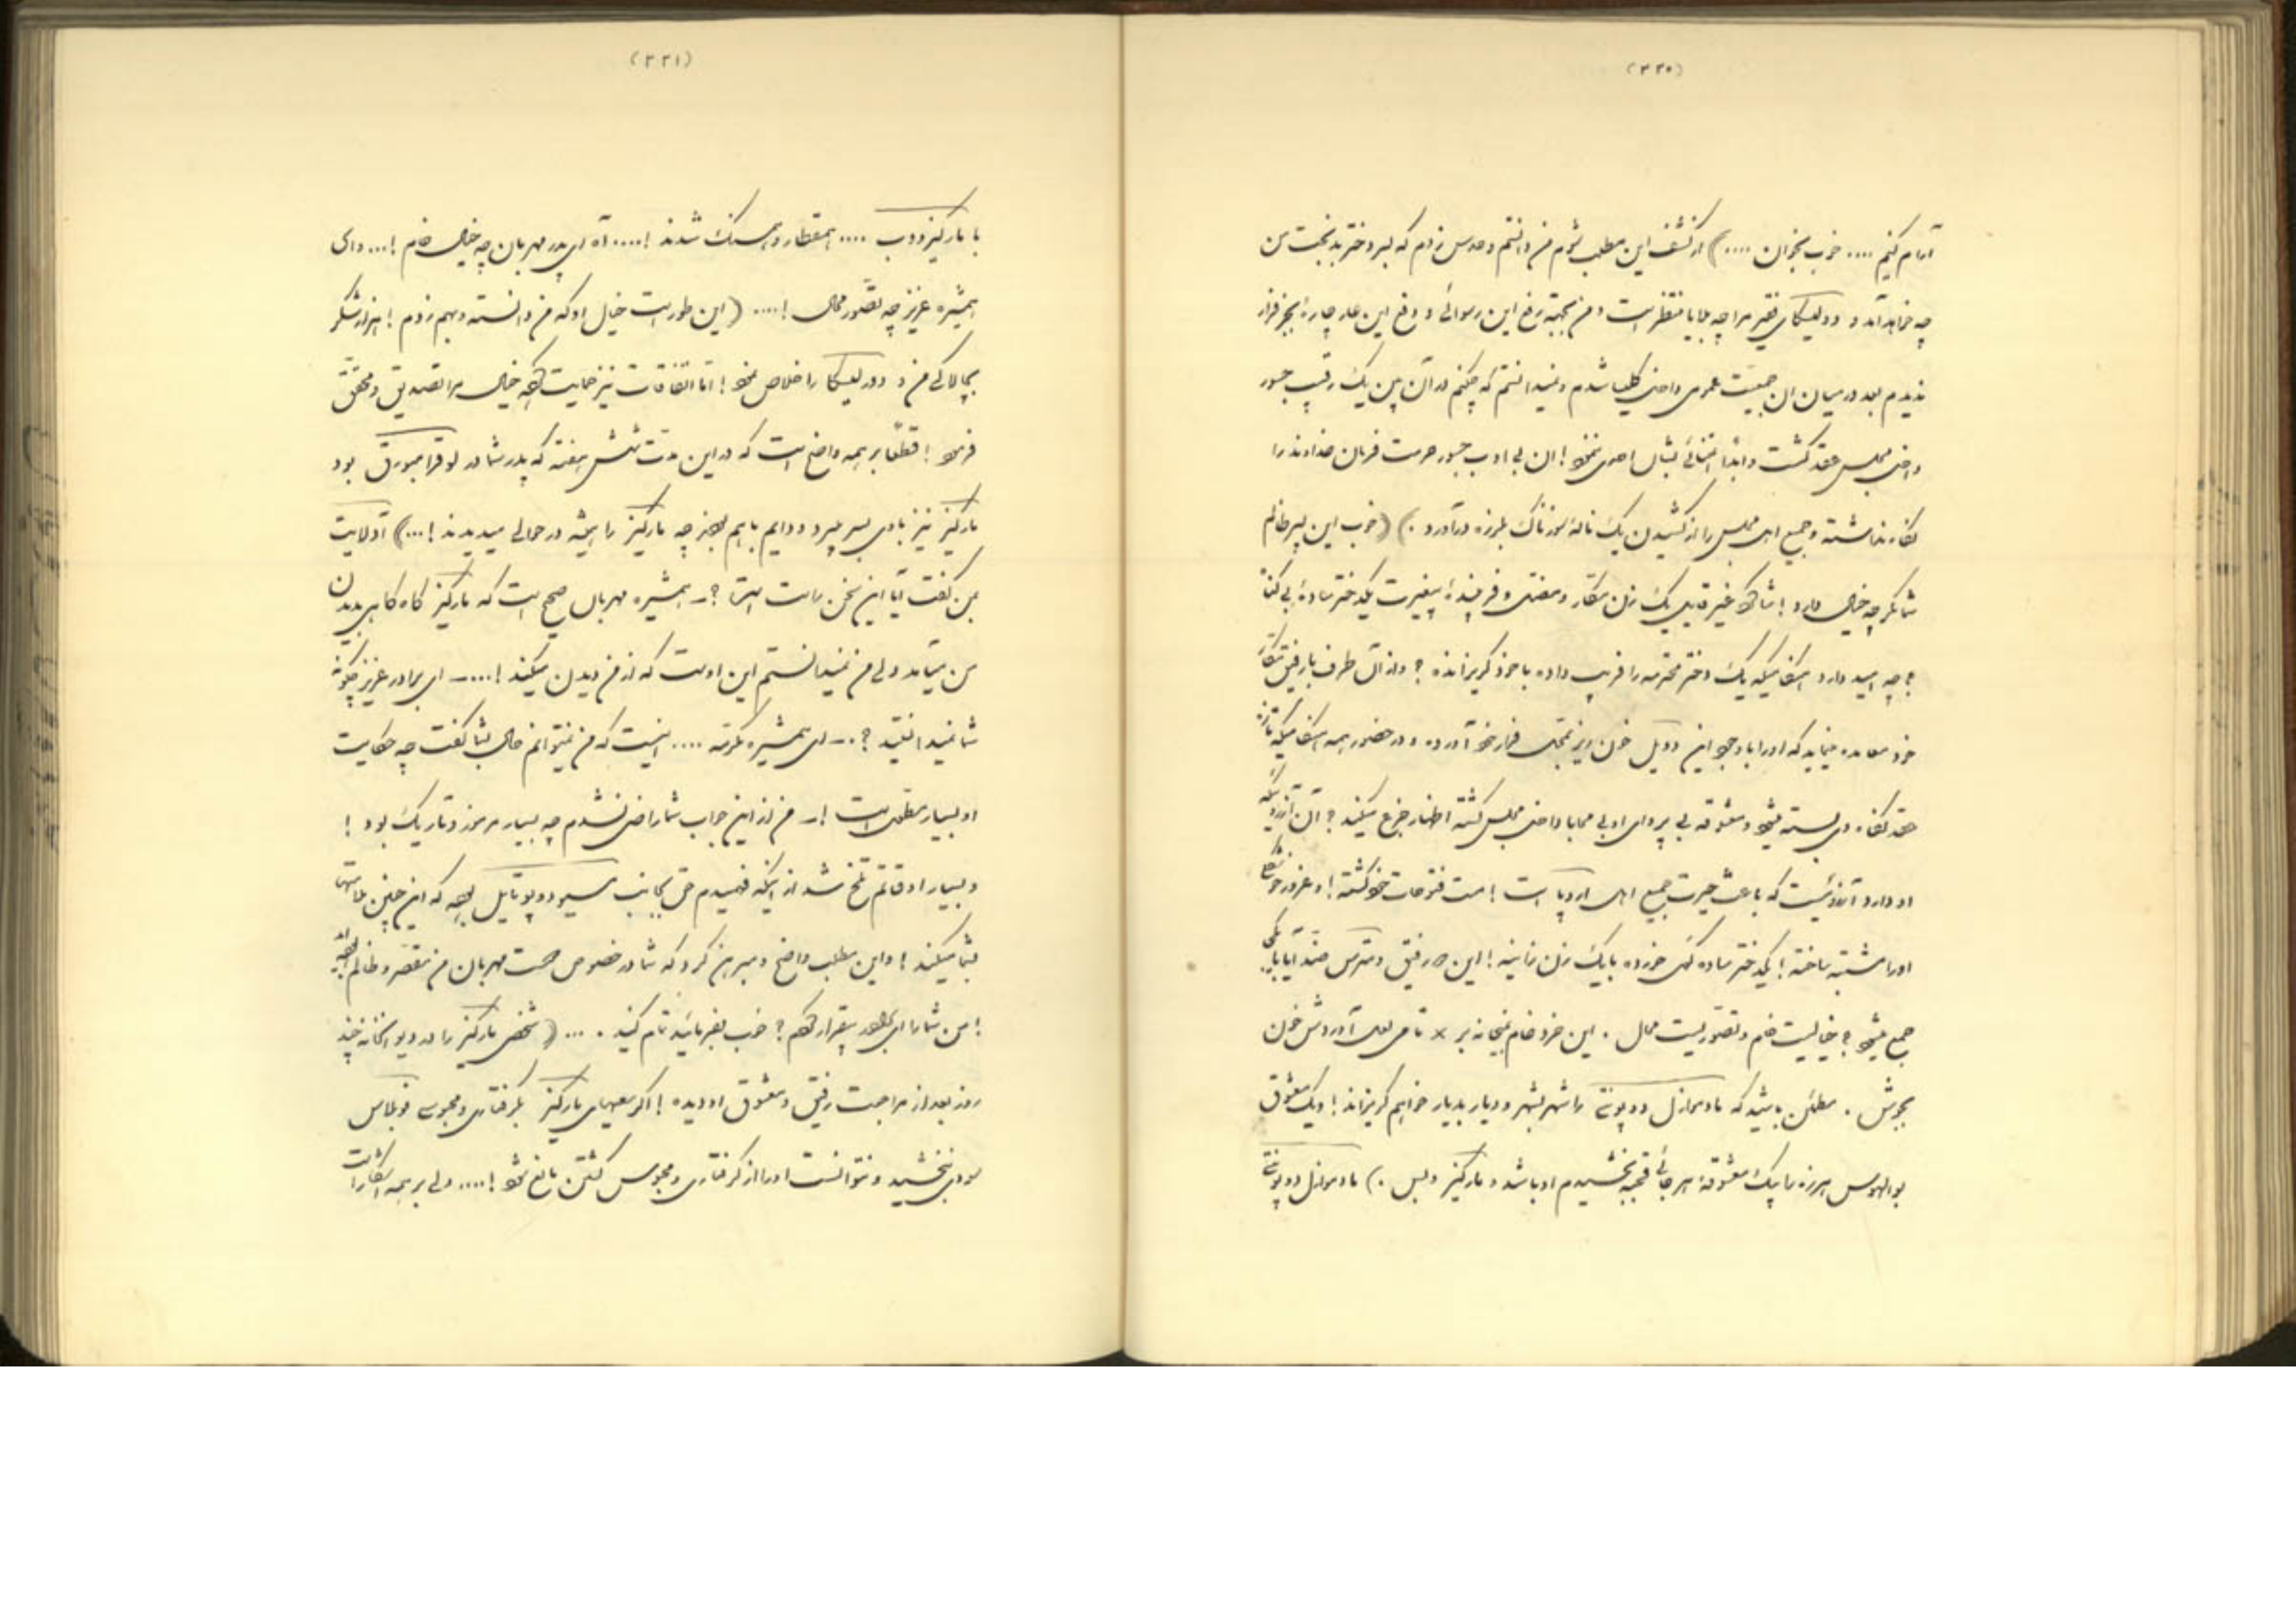 (۲۲۰)
آرام کنیم .... خوب بخوان ....) از کشف این مطلب شوم من دانستم و حدس زدم که بسر دختر بدبخت من
چه خواهد آمد و دولیسکای فقیر مرا چه بلایا منتظر است و من بجهة رفع این رسوائی و دفع این عار چارهٔ بجز فرار
ندیدم بعد در میان آن جمعیت عمومی داخل کلیسا شدم و نمیدانستم که چکنم در آن بین یک رقیب جسور
داخل مجلس عقد گشت و ابداً اعتنائی بشأن احدی ننمود! آن بی ادب جسور حرمت فرمان خداوند را
نگاه نداشته و جمیع اهل مجلس را از کشیدن یک نالهٔ سوزناک بلرزه درآورد .) (خوب این پیر ظالم
شما مگر چه خیال دارد! غیر قابل یک زن مکار و مفتن و فریبندهٔ بیغیرت یکدختر سادهٔ بی گناه
؟ چه امید دارد اشخاصیکه یک دختر محترمه را فریب داده با خود گریزانده ؟ و از آن طرف با رفیق مکار
خود معاهده مینماید که او را با وجود این دویل خون ریز بمحل قرار خود آورده و در حضور همه اشخاصیکه
عقد نگاه دل بسته میشود و معشوقه بی پروای او بی محابا داخل مجلس گشته اظهار جزع میکند ؟ آن آرزوئیکه
او دارد آرزوئیست که باعث حیرت جمیع اهل اروپا است ! مست فتوحات خود گشته ! و غرور
او را مشتبه ساخته ! یکدختر ساده گول خورده با یک زن زانیه ! این دو رفیق و مترس ضد آیا با یکی
جمع میشود ؟ خیالیست خام و تصوریست محال . این خرد خام بمیخانه بر × تا می لعل آوردش خون
بجوش . مطمئن باشید که مادموازل دوپونتے را شهر بشهر و دیار بدیار خواهیم گریزاند ! و یک معشوق
بوالهوس هرزه با یک معشوقهٔ هر جائی قحبه بخشیدم او باشد و مارکیز و بس .) مادموازل دوپونتے
(۲۲۱)
با مارکیز دوب .... همقطار و هم سنگ شدند !.... آه ای پدر مهربان چه خیال خام !... وای
همشیره عزیز چه تصور محال !.... (این طور است خیال او که من دانسته و بهم زدم ! هزار شکر
بچالاکی من و دولیسکا را خلاص نمود ! اما اتفاقات نیز حمایت خیال مرا تصدیق و محقق
فرمود ! قطعاً بر همه واضح است که در این مدت شش هفته که پدر شما در لوقزامبورق بود
مارکیز نیز با وی بسر میبرد و دایم با هم بودند چه مارکیز را همیشه در حوالی میدیدند !...) آدلاییت
بمن گفت آیا این سخن راست است ؟ ــ همشیره مهربان صحیح است که مارکیز گاه گاهی بدیدن
من میآمد ولی من نمیدانستم این اوست که از من دیدن میکند !.... ــ ای برادر عزیز چگونه
شما نمیدانستید ؟ .ــ ای همشیره مکرمه .... اینست که من نمیتوانم حال بشما گفت چه حکایت
او بسیار مطول است ! ــ من از این جواب شما راضی نشدم چه بسیار مرموز و تاریک بود !
و بسیار اوقاتم تلخ شد از اینکه فهمیدم حق بجانب مسیو دوپورتایل بوده که این چنین ملامتها
بشما میکند ! و این مطلب واضح و مبرهن کرد که شما در خصوص محبت مهربان من مقصر و ظالم بوده اید
! من شما را بی قرار کردم ؟ خوب بفرمائید تمام کنید . ... (شخص مارکیز را در دیوانخانه چند
روز بعد از مراجعت رفیق و معشوق او دیده ! اگر سعیهای مارکیز بگرفتاری و محبوسی فوبلاس
سودی نبخشید و نتوانست او را از گرفتاری و محبوس گشتن مانع شود !.... ولی بر همه آشکار است